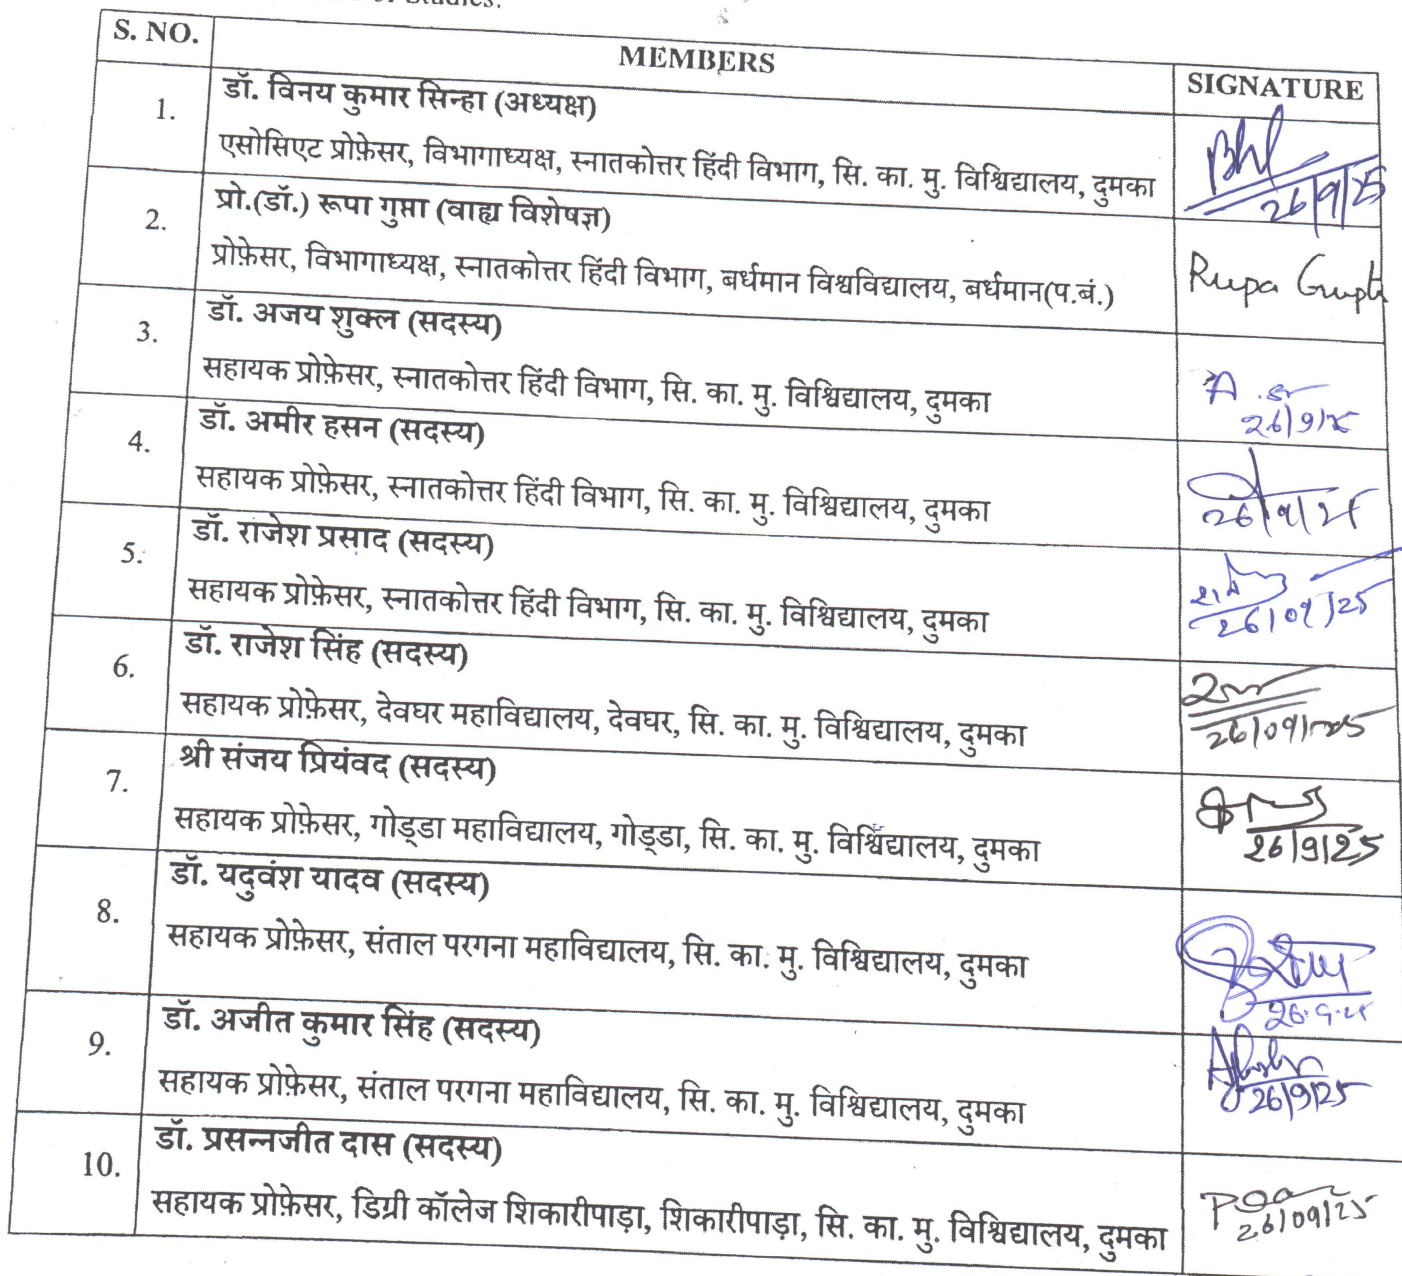 Studies.
S. NO. MEMBERS SIGNATURE
1. डॉ. विनय कुमार सिन्हा (अध्यक्ष)
एसोसिएट प्रोफ़ेसर, विभागाध्यक्ष, स्नातकोत्तर हिंदी विभाग, सि. का. मु. विश्विद्यालय, दुमका
26/9/25
2. प्रो.(डॉ.) रूपा गुप्ता (वाह्य विशेषज्ञ)
प्रोफ़ेसर, विभागाध्यक्ष, स्नातकोत्तर हिंदी विभाग, बर्धमान विश्वविद्यालय, बर्धमान(प.बं.)
Rupa Gupta
3. डॉ. अजय शुक्ल (सदस्य)
सहायक प्रोफ़ेसर, स्नातकोत्तर हिंदी विभाग, सि. का. मु. विश्विद्यालय, दुमका
4. डॉ. अमीर हसन (सदस्य)
सहायक प्रोफ़ेसर, स्नातकोत्तर हिंदी विभाग, सि. का. मु. विश्विद्यालय, दुमका
5. डॉ. राजेश प्रसाद (सदस्य)
सहायक प्रोफ़ेसर, स्नातकोत्तर हिंदी विभाग, सि. का. मु. विश्विद्यालय, दुमका
26/09/25
6. डॉ. राजेश सिंह (सदस्य)
सहायक प्रोफ़ेसर, देवघर महाविद्यालय, देवघर, सि. का. मु. विश्विद्यालय, दुमका
26/09/2025
7. श्री संजय प्रियंवद (सदस्य)
सहायक प्रोफ़ेसर, गोड्डा महाविद्यालय, गोड्डा, सि. का. मु. विश्विद्यालय, दुमका
26/9/25
8. डॉ. यदुवंश यादव (सदस्य)
सहायक प्रोफ़ेसर, संताल परगना महाविद्यालय, सि. का. मु. विश्विद्यालय, दुमका
9. डॉ. अजीत कुमार सिंह (सदस्य)
सहायक प्रोफ़ेसर, संताल परगना महाविद्यालय, सि. का. मु. विश्विद्यालय, दुमका
26/9/25
10. डॉ. प्रसन्नजीत दास (सदस्य)
सहायक प्रोफ़ेसर, डिग्री कॉलेज शिकारीपाड़ा, शिकारीपाड़ा, सि. का. मु. विश्विद्यालय, दुमका
26/09/25